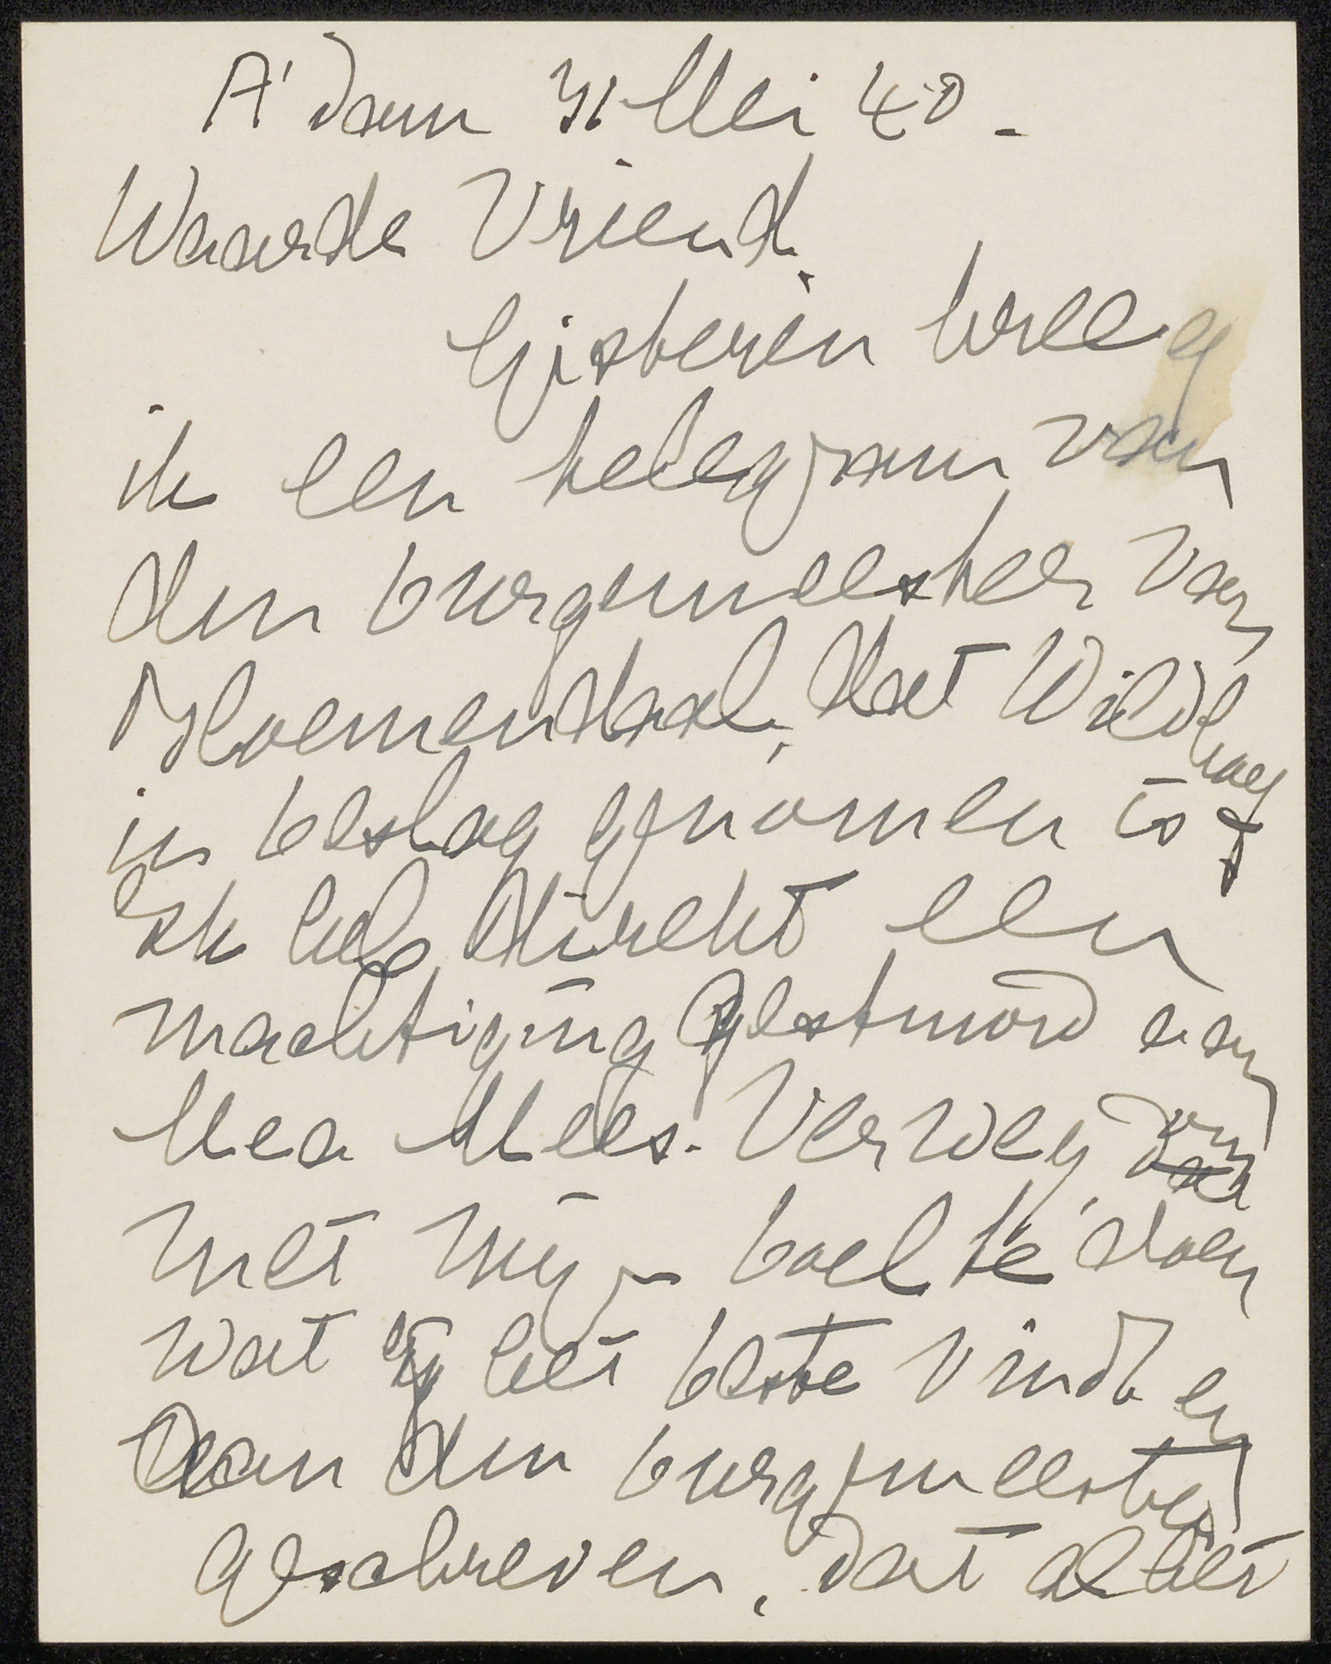 A'dam 31 Mei 40.
Waarde Vriend,
Gisteren kreeg
ik een telegram van
den burgemeester van
Bloemendaal, dat Wildhoef
in beslag genomen is
Ik heb direkt een
machtiging gestuurd aan
Mea Mees-Verwey, om
met mijn boel te doen
wat zij het beste vindt en
aan den burgemeester
geschreven, dat al het